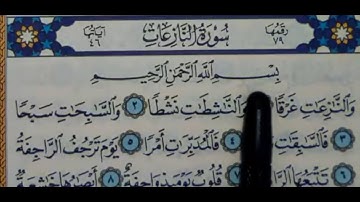 رقمها ٧٩ سورة النازعات آياتها ٤٦
بِسْمِ اللَّهِ الرَّحْمَٰنِ الرَّحِيمِ
وَالنَّازِعَاتِ غَرْقًا وَالنَّاشِطَاتِ نَشْطًا ٢ وَالسَّابِحَاتِ سَبْحًا
٣ فَالسَّابِقَاتِ ٤ فَالْمُدَبِّرَاتِ أَمْرًا ٥ يَوْمَ تَرْجُفُ الرَّاجِفَةُ
٦ تَتْبَعُهَا ٧ قُلُوبٌ يَوْمَئِذٍ وَاجِفَةٌ ٨ أَبْصَارُهَا خَاشِعَةٌ